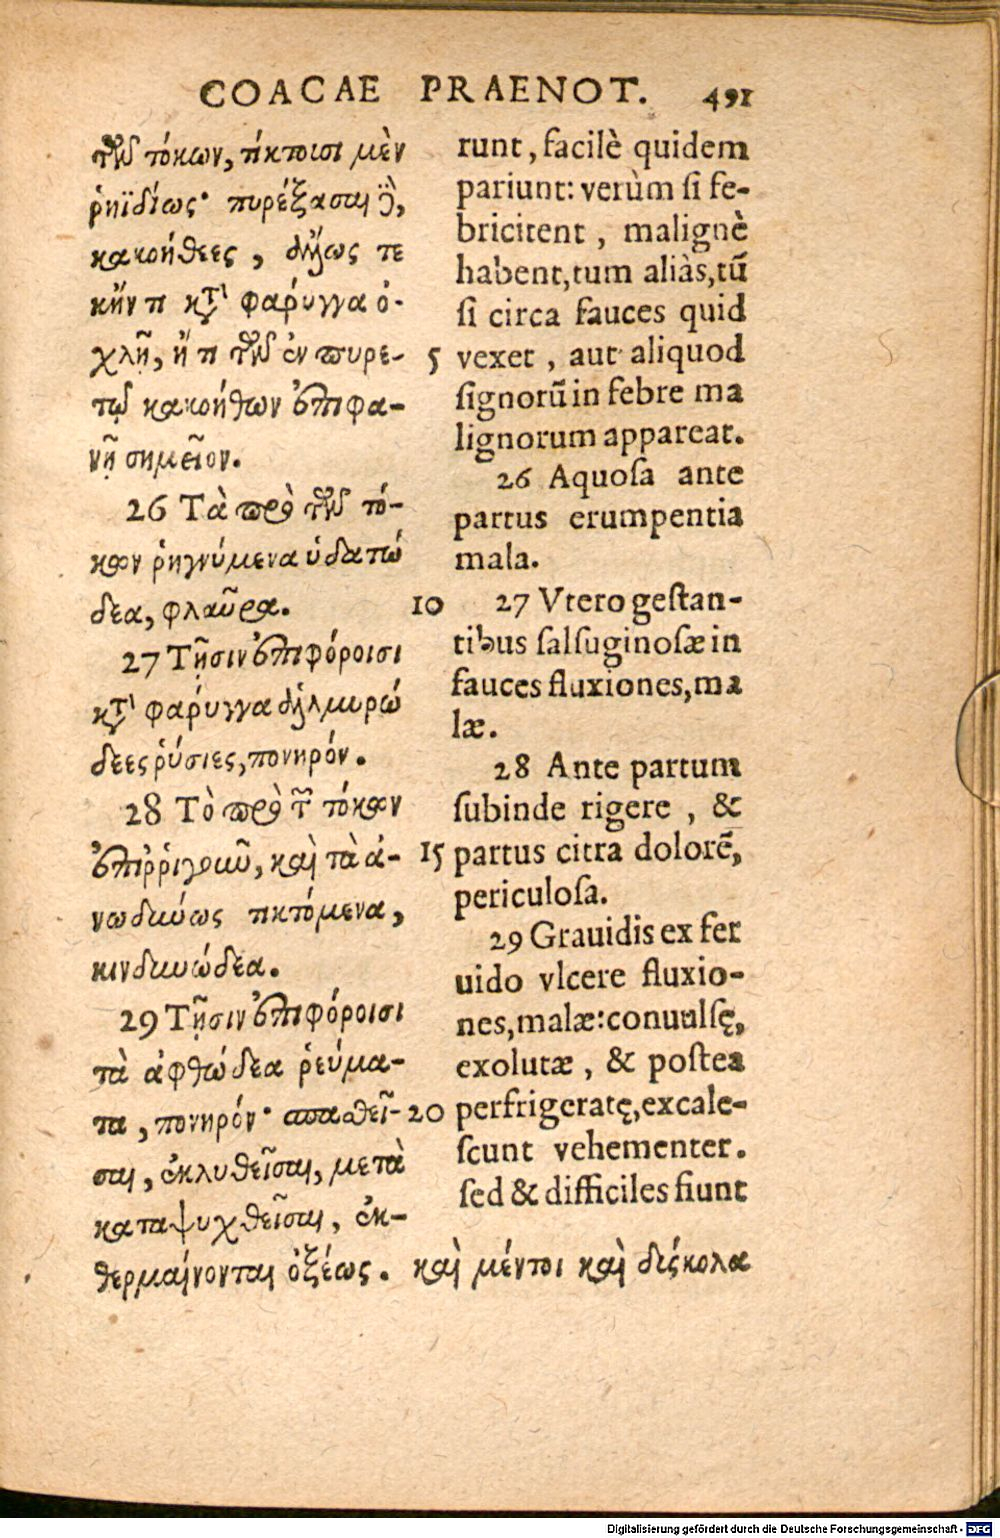 COACAE PRAENOT. 491
τῶν τόκων, τίκτουσι μὲν
ῥηϊδίως· πυρέξασαι δὲ,
κακοήθεες, ἄλλως τε
κἤν τι κατὰ φάρυγγα ὀ-
χλῇ, ἤ τι τῶν ἐν πυρε-
τῷ κακοήθων ἐπιφα-
νῇ σημεῖον.
26 Τὰ πρὸ τῶν τό-
κων ῥηγνύμενα ὑδατώ
δεα, φλαῦρα.
27 Τῇσιν ἐπιφόροισι
κατὰ φάρυγγα ἁλμυρώ
δεες ῥύσιες, πονηρόν.
28 Τὸ πρὸ τῶν τόκων
ἐπιῤῥιγοῦν, καὶ τὰ ἀ-
νωδύνως τικτόμενα,
κινδυνώδεα.
29 Τῇσιν ἐπιφόροισι
τὰ ἀφθώδεα ῥεύμα-
τα, πονηρόν· σπασθεῖ-
σαι, ἐκλυθεῖσαι, μετὰ
καταψυχθεῖσαι, ἐκ-
θερμαίνονται ὀξέως. καὶ μέντοι καὶ δύσκολα
runt, facilè quidem
pariunt: verùm si fe-
bricitent, malignè
habent, tum aliàs, tũ
si circa fauces quid
5 vexet, aut aliquod
signorũ in febre ma
lignorum appareat.
26 Aquosa ante
partus erumpentia
mala.
10 27 Vtero gestan-
tibus salsuginosæ in
fauces fluxiones, ma
læ.
28 Ante partum
subinde rigere, &
15 partus citra dolorẽ,
periculosa.
29 Grauidis ex fer
uido vlcere fluxio-
nes, malæ: conuulsę,
exolutæ, & postea
20 perfrigeratę, excale-
scunt vehementer.
sed & difficiles fiunt
Digitalisierung gefördert durch die Deutsche Forschungsgemeinschaft - DFG